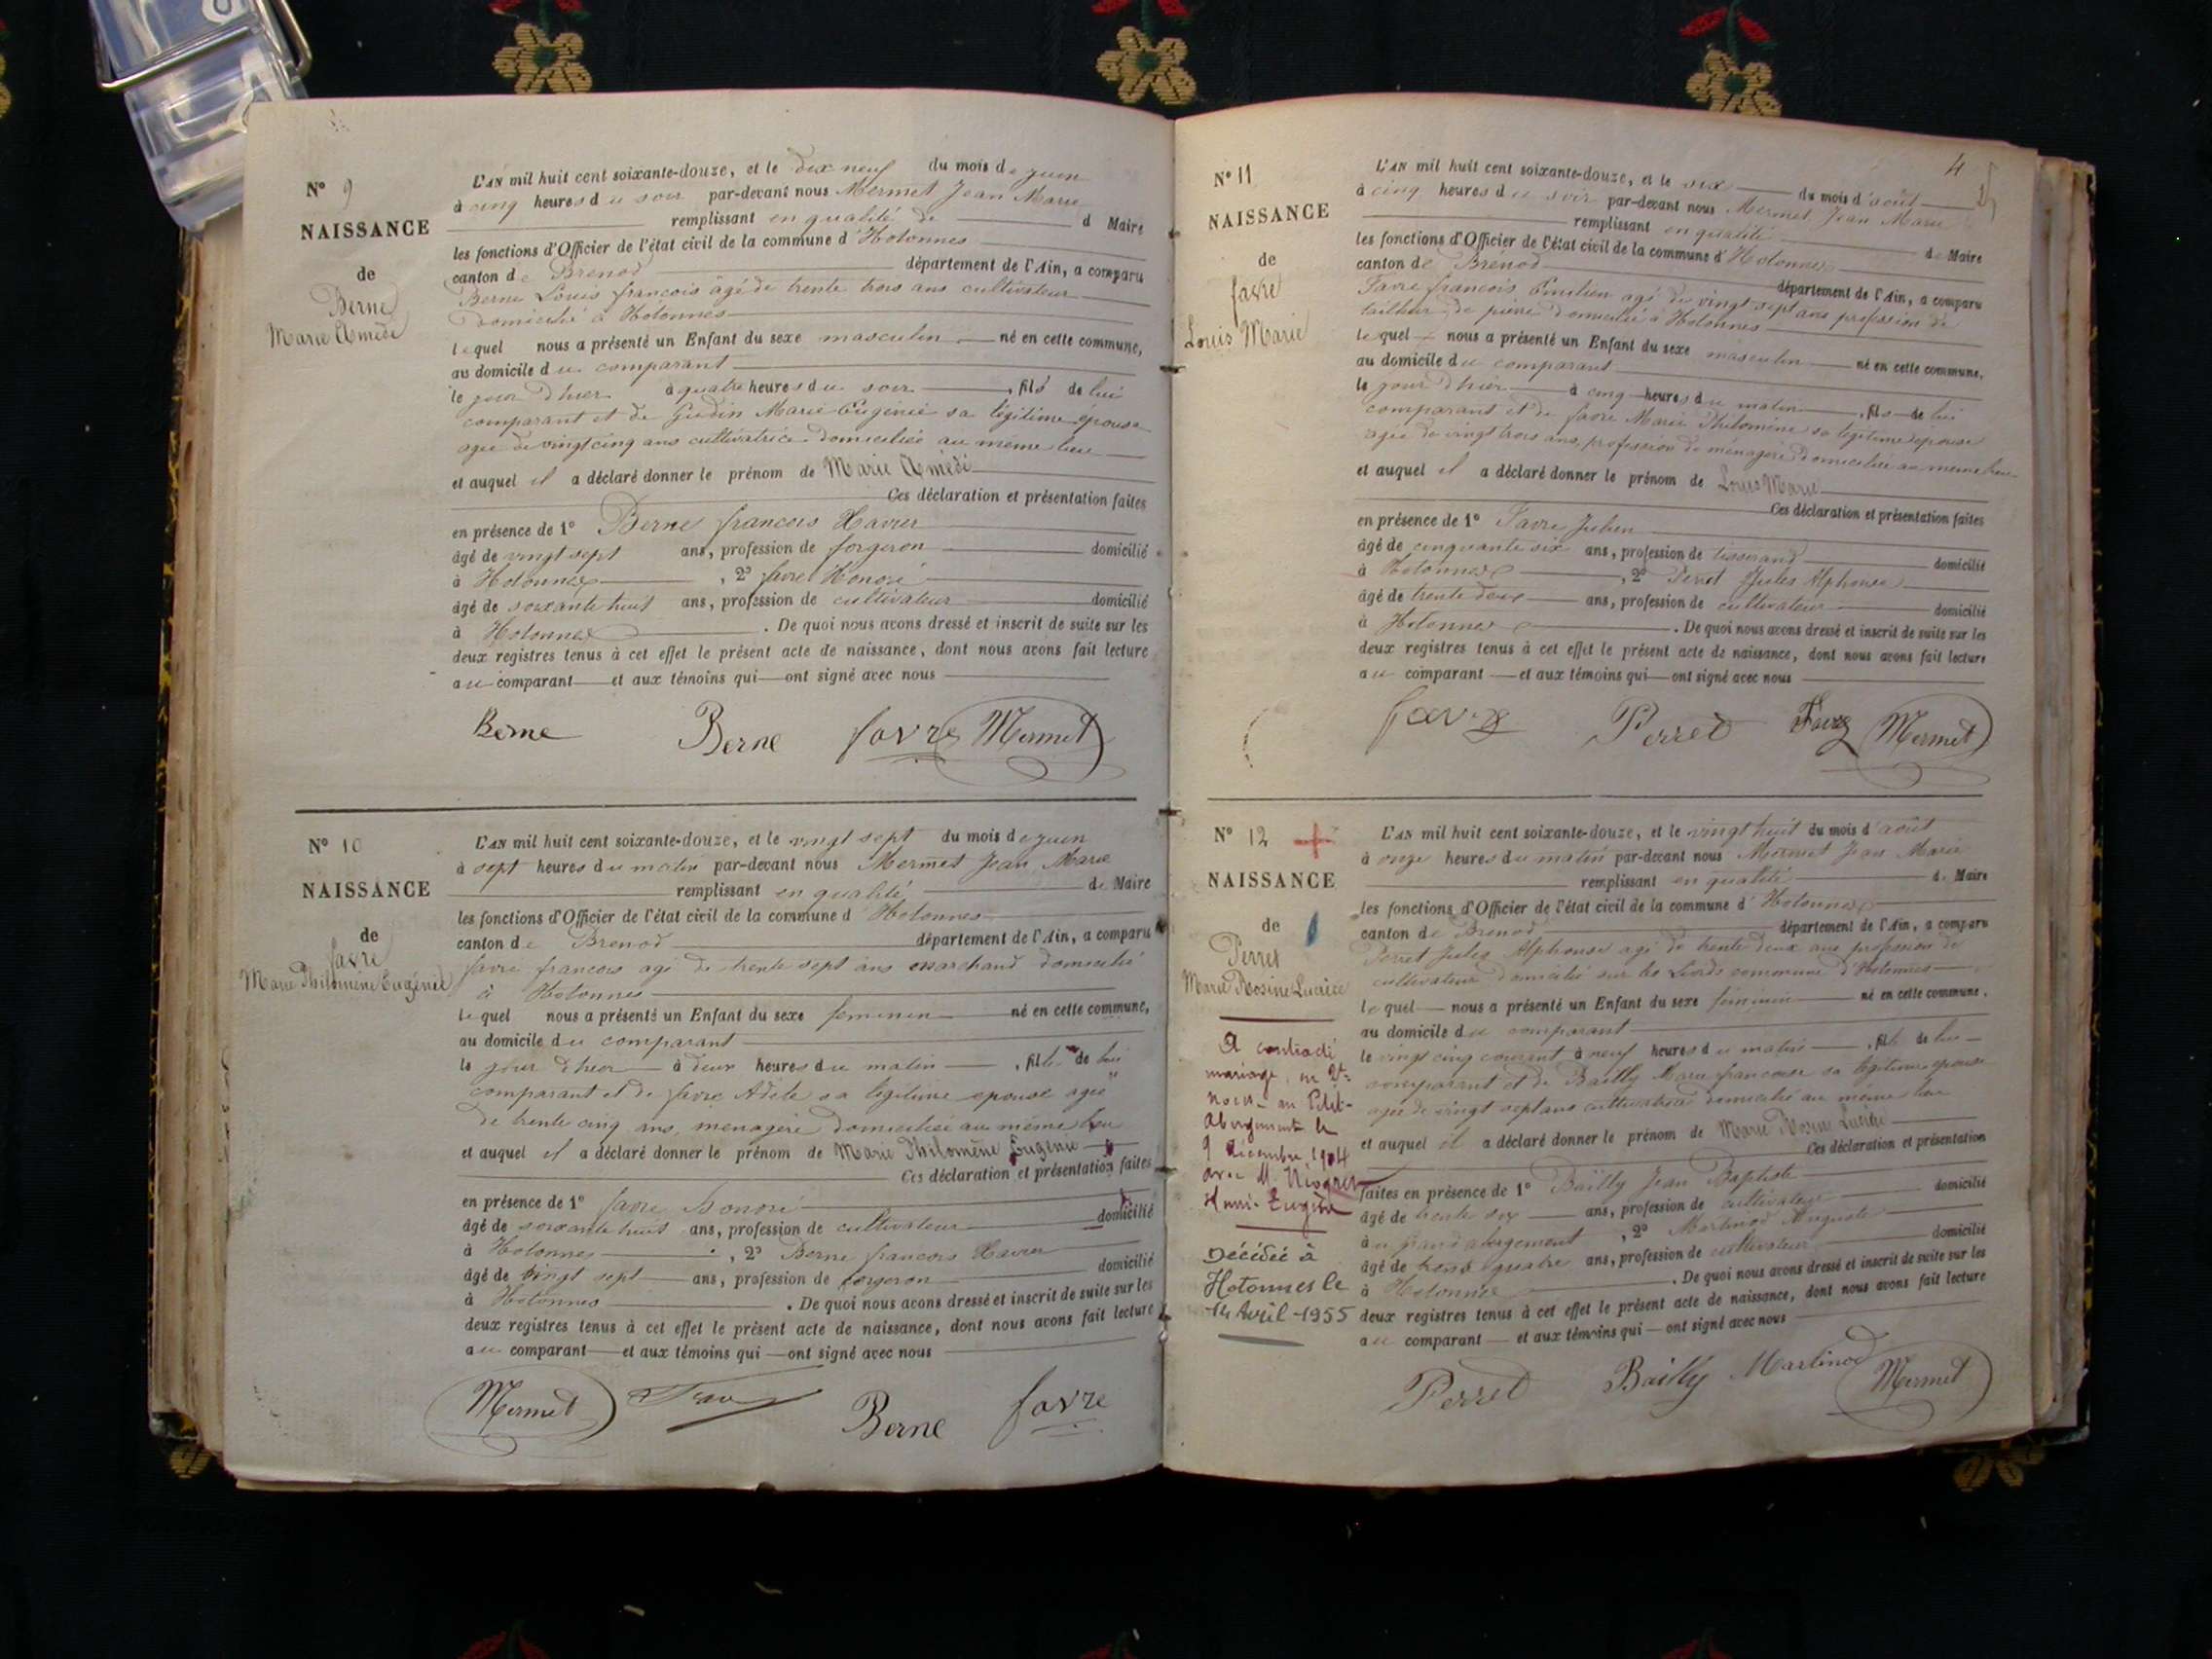 N° 9
NAISSANCE
de
Berne
Marie Amédé
L'AN mil huit cent soixante-douze, et le dix neuf du mois de juin
à cinq heures du soir par-devant nous Mermet Jean Marie
remplissant en qualité de d Maire
les fonctions d'Officier de l'état civil de la commune d'Hotonnes
canton de Brenod département de l'Ain, a comparu
Berne Louis francois âgé de trente trois ans cultivateur
domicilié à Hotonnes
lequel nous a présenté un Enfant du sexe masculin né en cette commune,
au domicile du comparant
le jour d'hier à quatre heures du soir, fils de lui
comparant et de Marie Eugénie sa légitime épouse
agée de vingt cinq ans cultivatrice domiciliée au même lieu
et auquel il a déclaré donner le prénom de Marie Amédé
Ces déclaration et présentation faites
en présence de 1° Berne francois Xavier
âgé de vingt sept ans, profession de forgeron domicilié
à Hotonnes, 2° favre Honoré
âgé de soixante huit ans, profession de cultivateur domicilié
à Hotonnes. De quoi nous avons dressé et inscrit de suite sur les
deux registres tenus à cet effet le présent acte de naissance, dont nous avons fait lecture
au comparant et aux témoins qui ont signé avec nous
Berne Berne favre Mermet
N° 10
NAISSANCE
de
favre
Marie Philomène Eugénie
L'AN mil huit cent soixante-douze, et le vingt sept du mois de juin
à sept heures du matin par-devant nous Mermet Jean Marie
remplissant en qualité de Maire
les fonctions d'Officier de l'état civil de la commune d'Hotonnes
canton de Brenod département de l'Ain, a comparu
favre francois agé de trente sept ans marchand domicilié
à Hotonnes
lequel nous a présenté un Enfant du sexe feminin né en cette commune,
au domicile du comparant
le jour d'hier à deux heures du matin, fille de lui
comparant et de favre Adèle sa légitime epouse agée
de trente cinq ans, menagère domiciliée au même lieu
et auquel il a déclaré donner le prénom de Marie Philomène Eugénie
Ces déclaration et présentation faites
en présence de 1° favre Honoré
âgé de soixante huit ans, profession de cultivateur domicilié
à Hotonnes, 2° Berne francois Xavier
âgé de vingt sept ans, profession de forgeron domicilié
à Hotonnes. De quoi nous avons dressé et inscrit de suite sur les
deux registres tenus à cet effet le présent acte de naissance, dont nous avons fait lecture
au comparant et aux témoins qui ont signé avec nous
Mermet Berne favre
4
N° 11
NAISSANCE
de
favre
Louis Marie
L'AN mil huit cent soixante-douze, et le six du mois d'août
à cinq heures du soir par-devant nous Mermet Jean Marie
remplissant en qualité de Maire
les fonctions d'Officier de l'état civil de la commune d'Hotonnes
canton de Brénod département de l'Ain, a comparu
Favre francois Emilien agé de vingt sept ans profession de
tailleur de pierre domicilié à Hotonnes
lequel nous a présenté un Enfant du sexe masculin né en cette commune,
au domicile du comparant
le jour d'hier à cinq heures du matin, fils de lui
comparant et de favre Marie Philomène sa légitime épouse
agée de vingt trois ans, profession de ménagère domiciliée au même lieu
et auquel il a déclaré donner le prénom de Louis Marie
Ces déclaration et présentation faites
en présence de 1° Favre Julien
âgé de cinquante six ans, profession de tisserand domicilié
à Hotonnes, 2° Perret Jules Alphonse
âgé de trente deux ans, profession de cultivateur domicilié
à Hotonnes. De quoi nous avons dressé et inscrit de suite sur les
deux registres tenus à cet effet le présent acte de naissance, dont nous avons fait lecture
au comparant et aux témoins qui ont signé avec nous
favre Perret Mermet
N° 12
NAISSANCE
de
Perret
Marie Rosine
A contracté
mariage, en 2es
noces au Petit-
Abergement le
9 décembre 1904
avec M.
Eugène
Décédée à
Hotonnes le
14 Avril -1955
L'AN mil huit cent soixante-douze, et le vingt huit du mois d'août
à onze heures du matin par-devant nous Mermet Jean Marie
remplissant en qualité de Maire
les fonctions d'Officier de l'état civil de la commune d'Hotonnes
canton de Brenod département de l'Ain, a comparu
Perret Jules Alphonse agé de trente deux ans profession de
cultivateur domicilié sur les commune d'Hotonnes
lequel nous a présenté un Enfant du sexe féminin né en cette commune,
au domicile du comparant
le vingt cinq courant à neuf heures du matin, fille de lui
comparant et de Bailly Marie francoise sa légitime épouse
agée de vingt sept ans cultivatrice domicilié au même lieu
et auquel il a déclaré donner le prénom de Marie Rosine
Ces déclaration et présentation
faites en présence de 1° Bailly Jean Baptiste
âgé de trente six ans, profession de cultivateur domicilié
au grand abergement, 2° Martinod Auguste
âgé de trente quatre ans, profession de cultivateur domicilié
à Hotonnes. De quoi nous avons dressé et inscrit de suite sur les
deux registres tenus à cet effet le présent acte de naissance, dont nous avons fait lecture
au comparant et aux témoins qui ont signé avec nous
Perret Bailly Martinod Mermet